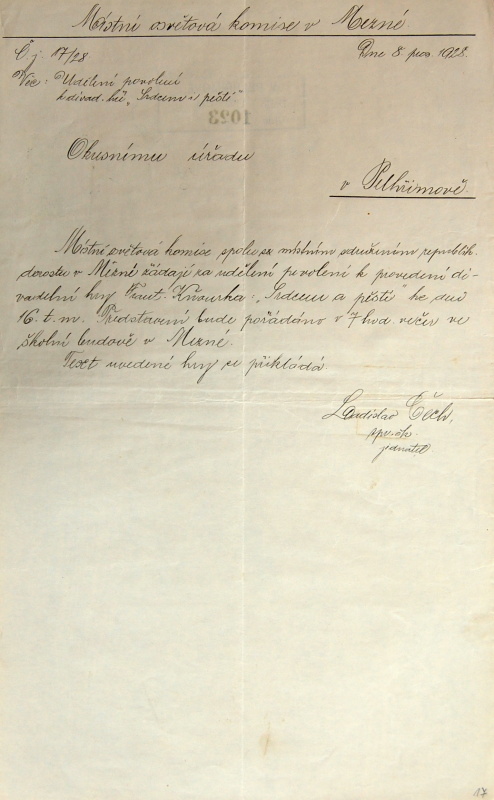 Místní osvětová komise v Mezné.
Č. j. 17/28
Dne 8. pros. 1928.
Věc: Udělení povolení
k divad. hře „Srdcem a pěstí".
1093
Okresnímu úřadu
v Pelhřimově.
Místní osvětová komise spolu se místním sdružením republik.
dorostu v Mezné žádají za udělení povolení k provedení di-
vadelní hry Frant. : „Srdcem a pěstí" he dne
16. t. m. Představení bude pořádáno v 7 hod. večer ve
školní budově v Mezné.
Text uvedené hry se přikládá.
Ladislav Čech,
jednatel
17